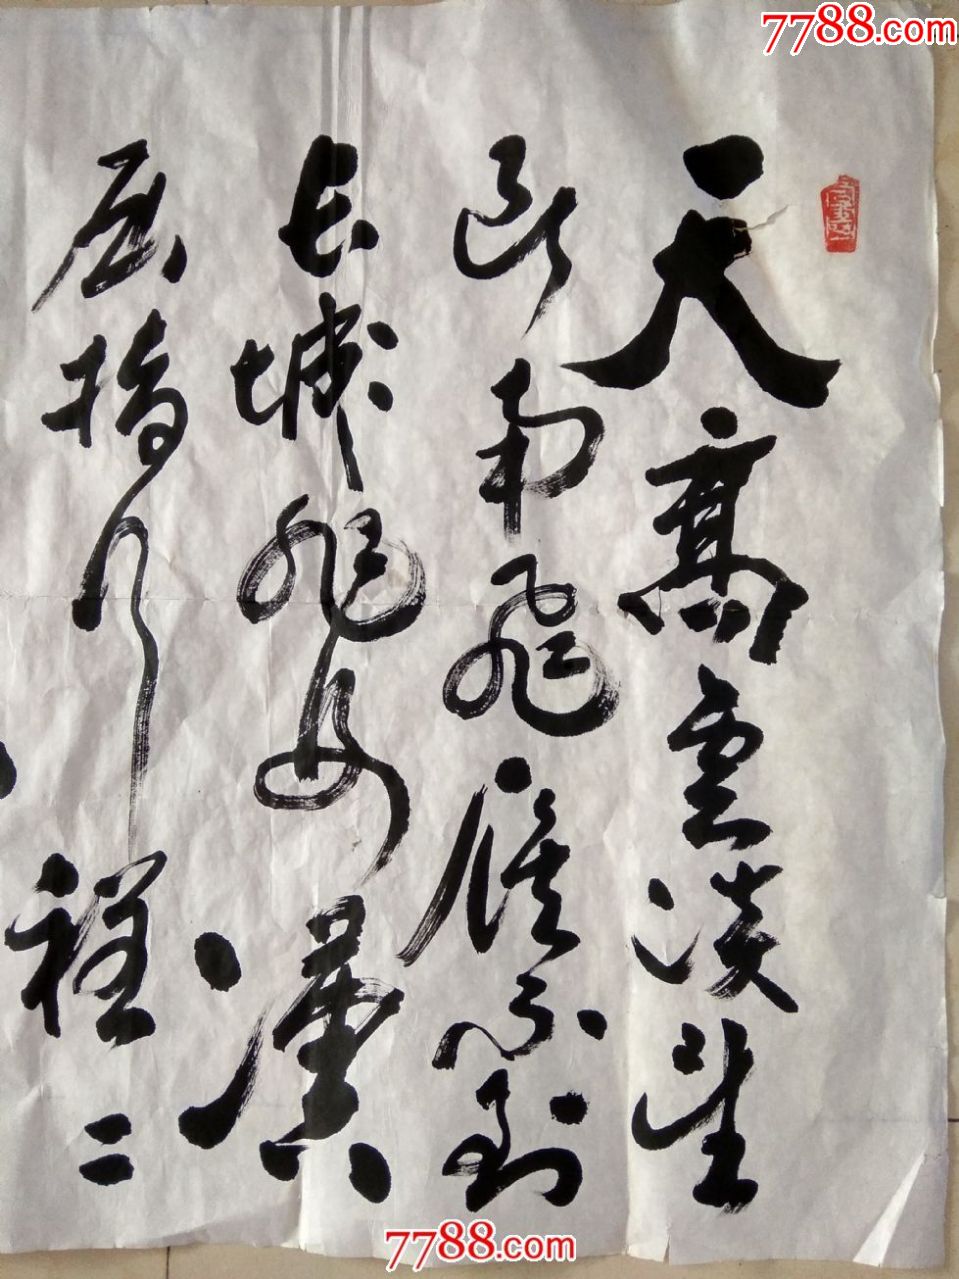 7788.com
天高云淡望
断南飞雁不到
长城非好漢
屈指行程二
7788.com